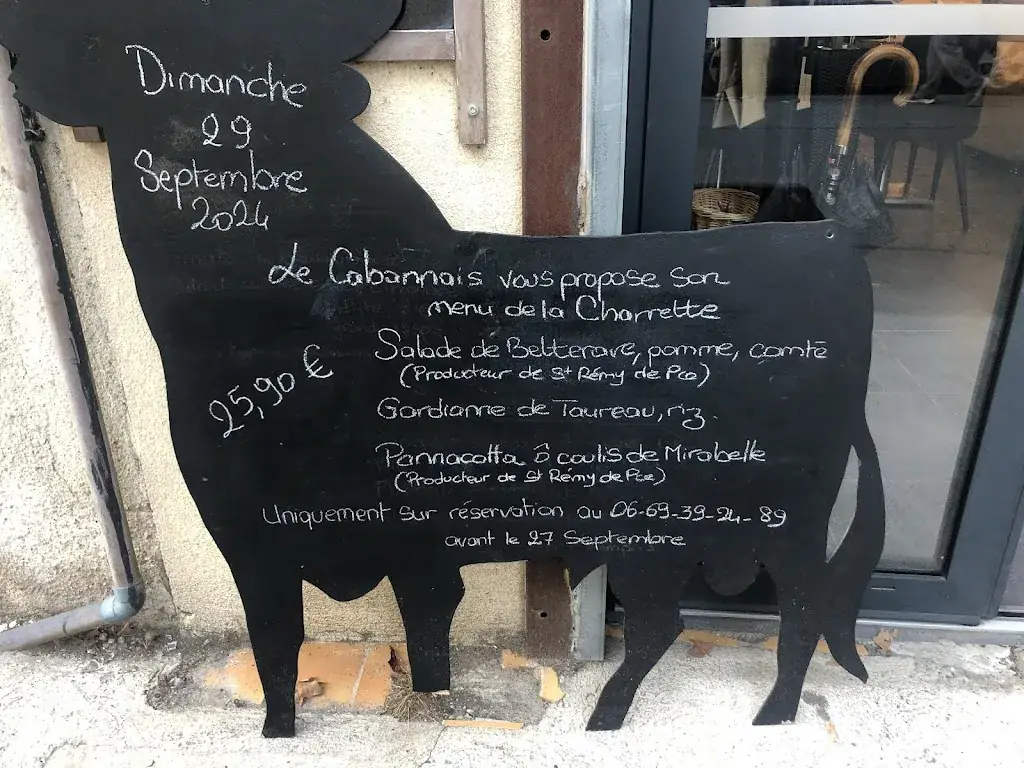 Dimanche
29
Septembre
2024
Le Cabannais vous propose son
menu de la Charrette
25,90 €
Salade de Betterave, pomme, comté
(Producteur de St Rémy de Pce)
Gardianne de Taureau, riz.
Pannacotta ô coulis de Mirabelle
(Producteur de St Rémy de Pce)
Uniquement sur réservation au 06-69-39-24-89
avant le 27 Septembre